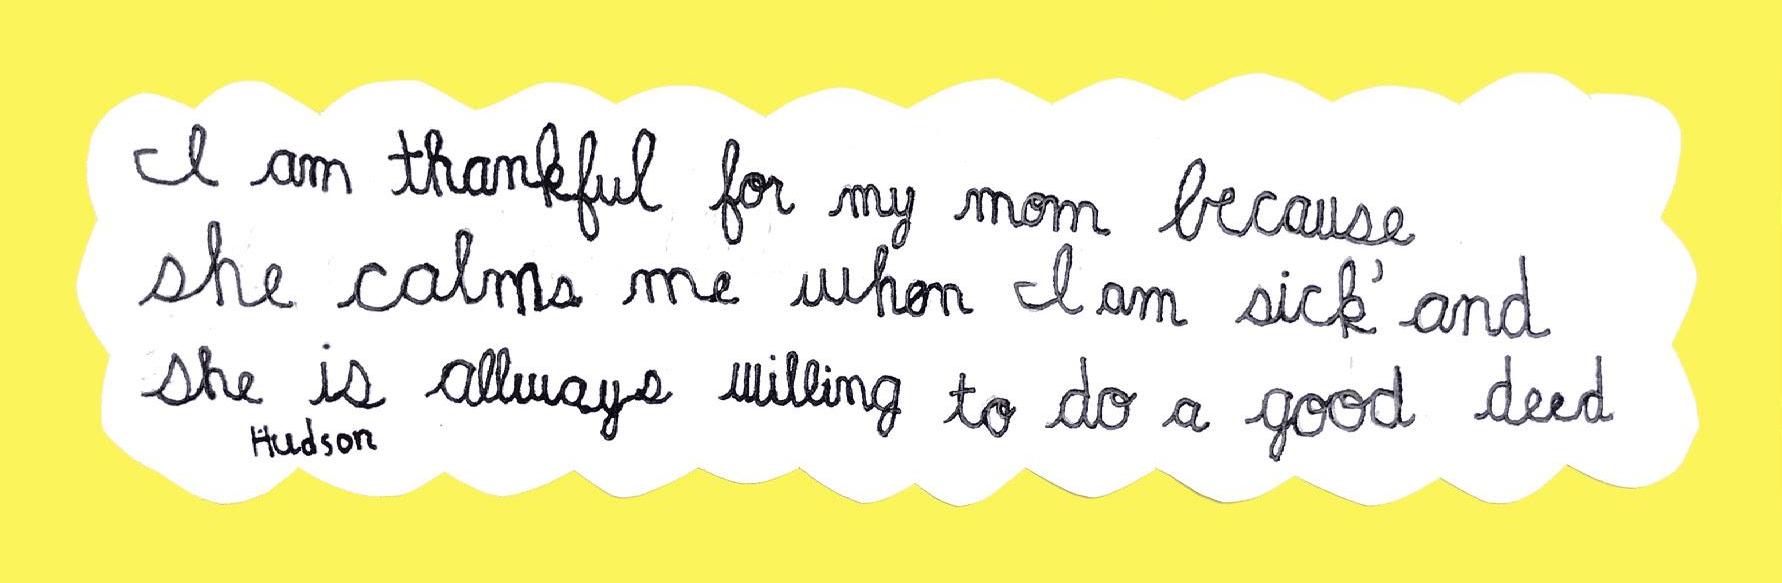 I am thankful for my mom because
she calms me when I am sick' and
she is allways willing to do a good deed
Hudson